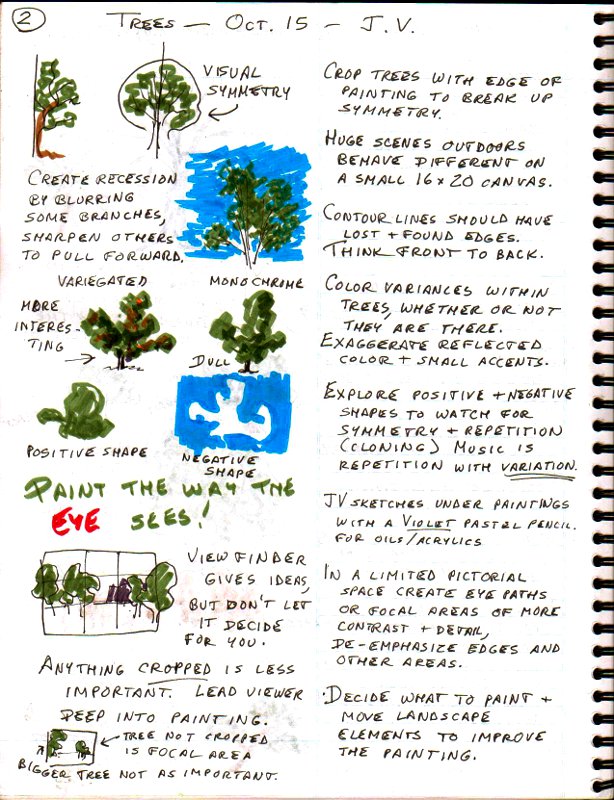 2
TREES — OCT. 15 — J.V.
VISUAL
SYMMETRY
CREATE RECESSION
BY BLURRING
SOME BRANCHES,
SHARPEN OTHERS
TO PULL FORWARD.
VARIEGATED
MONOCHROME
MORE
INTERES-
TING
DULL
POSITIVE SHAPE
NEGATIVE
SHAPE
PAINT THE WAY THE
EYE SEES!
VIEW FINDER
GIVES IDEAS,
BUT DON'T LET
IT DECIDE
FOR YOU.
ANYTHING CROPPED IS LESS
IMPORTANT. LEAD VIEWER
DEEP INTO PAINTING.
TREE NOT CROPPED
IS FOCAL AREA
BIGGER TREE NOT AS IMPORTANT.
CROP TREES WITH EDGE OF
PAINTING TO BREAK UP
SYMMETRY.
HUGE SCENES OUTDOORS
BEHAVE DIFFERENT ON
A SMALL 16x20 CANVAS.
CONTOUR LINES SHOULD HAVE
LOST + FOUND EDGES.
THINK FRONT TO BACK.
COLOR VARIANCES WITHIN
TREES, WHETHER OR NOT
THEY ARE THERE.
EXAGGERATE REFLECTED
COLOR + SMALL ACCENTS.
EXPLORE POSITIVE + NEGATIVE
SHAPES TO WATCH FOR
SYMMETRY + REPETITION
(CLONING) MUSIC IS
REPETITION WITH VARIATION.
JV SKETCHES UNDER PAINTINGS
WITH A VIOLET PASTEL PENCIL.
FOR OILS/ACRYLICS
IN A LIMITED PICTORIAL
SPACE CREATE EYE PATHS
OR FOCAL AREAS OF MORE
CONTRAST + DETAIL,
DE-EMPHASIZE EDGES AND
OTHER AREAS.
DECIDE WHAT TO PAINT +
MOVE LANDSCAPE
ELEMENTS TO IMPROVE
THE PAINTING.